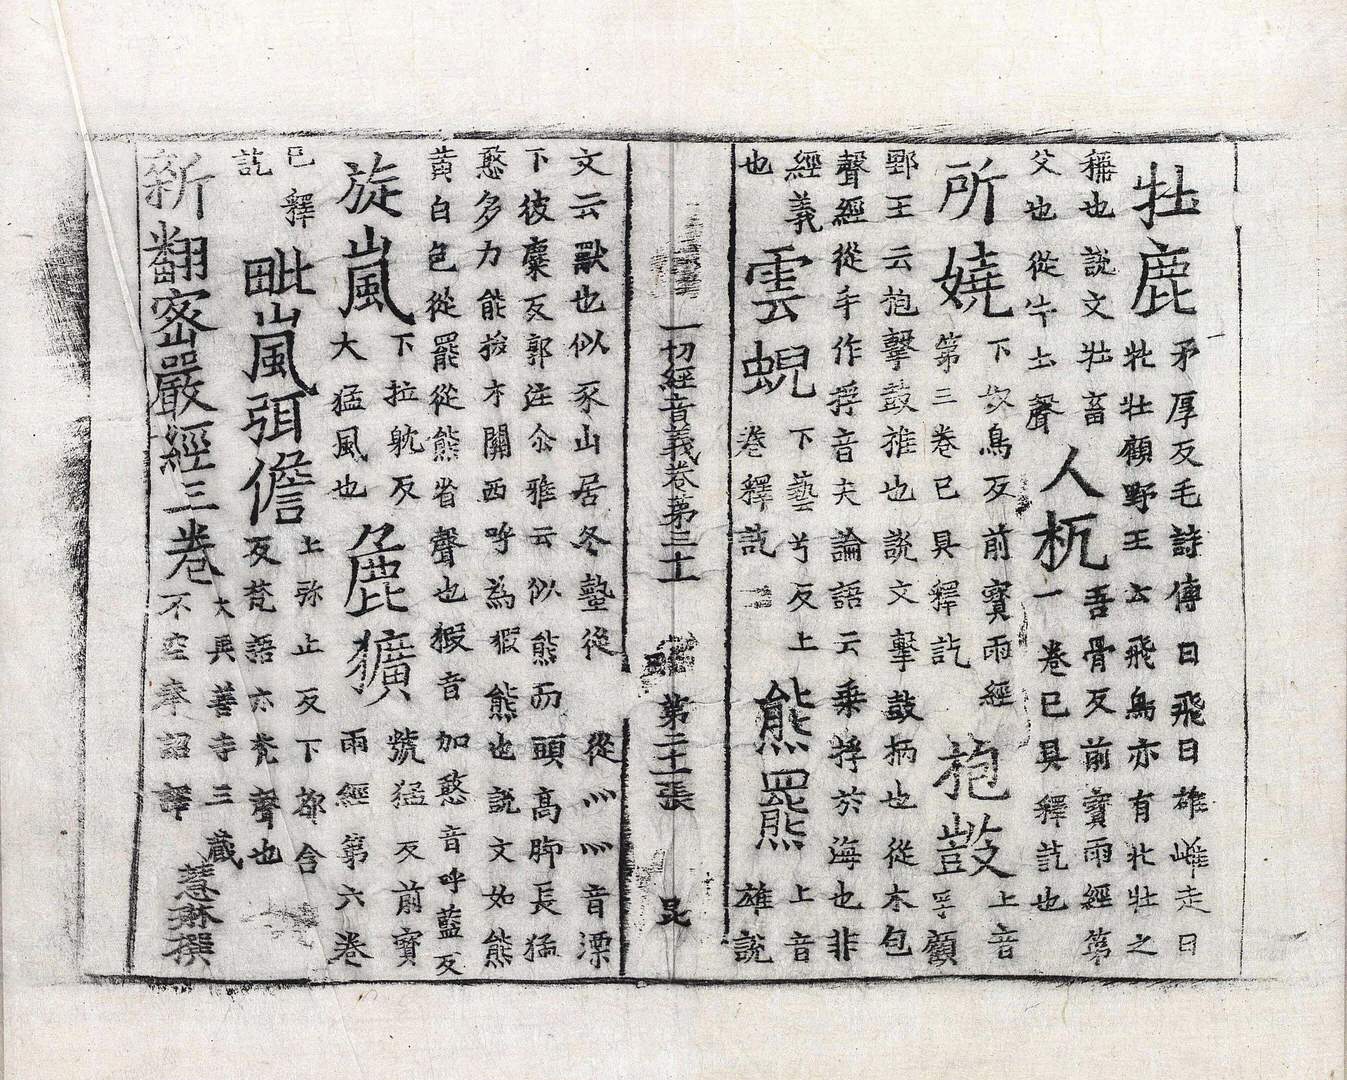 牡鹿
矛厚反毛詩傳曰飛曰雄雌走曰
牝牡顧野王云飛鳥亦有牝牡之
稱也說文牡畜
父也從牛土聲
人杌
吾骨反前寶雨經第
一卷已具釋訖也
所嬈
下奴鳥反前寶雨經
第三卷已具釋訖
枹鼓
上音
孚顧
野王云枹擊鼓推也說文擊鼓柄也從木包
聲經從手作捊音夫論語云乗捊於海也非
經義
也
雲蜺
下藝兮反上
卷釋訖
熊羆
上音
雄說
一切經音義卷第三十一 第二十一張 昆
文云獸也似豕山居冬蟄從 從灬灬音漂
下彼麋反郭注尒雅云似熊而頭高脚長猛
憨多力能拔木關西呼為猳熊也說文如熊
黃白色從羆從熊省聲也猳音加憨音呼藍反
旋嵐
下拉躭反
大猛風也
麁獷
虢猛反前寶
雨經第六卷
已釋
訖
毗嵐弭儋
上弥止反下都含
反梵語亦梵聲也
新翻密嚴經三卷
大興善寺三藏
不空奉詔譯
慧琳撰